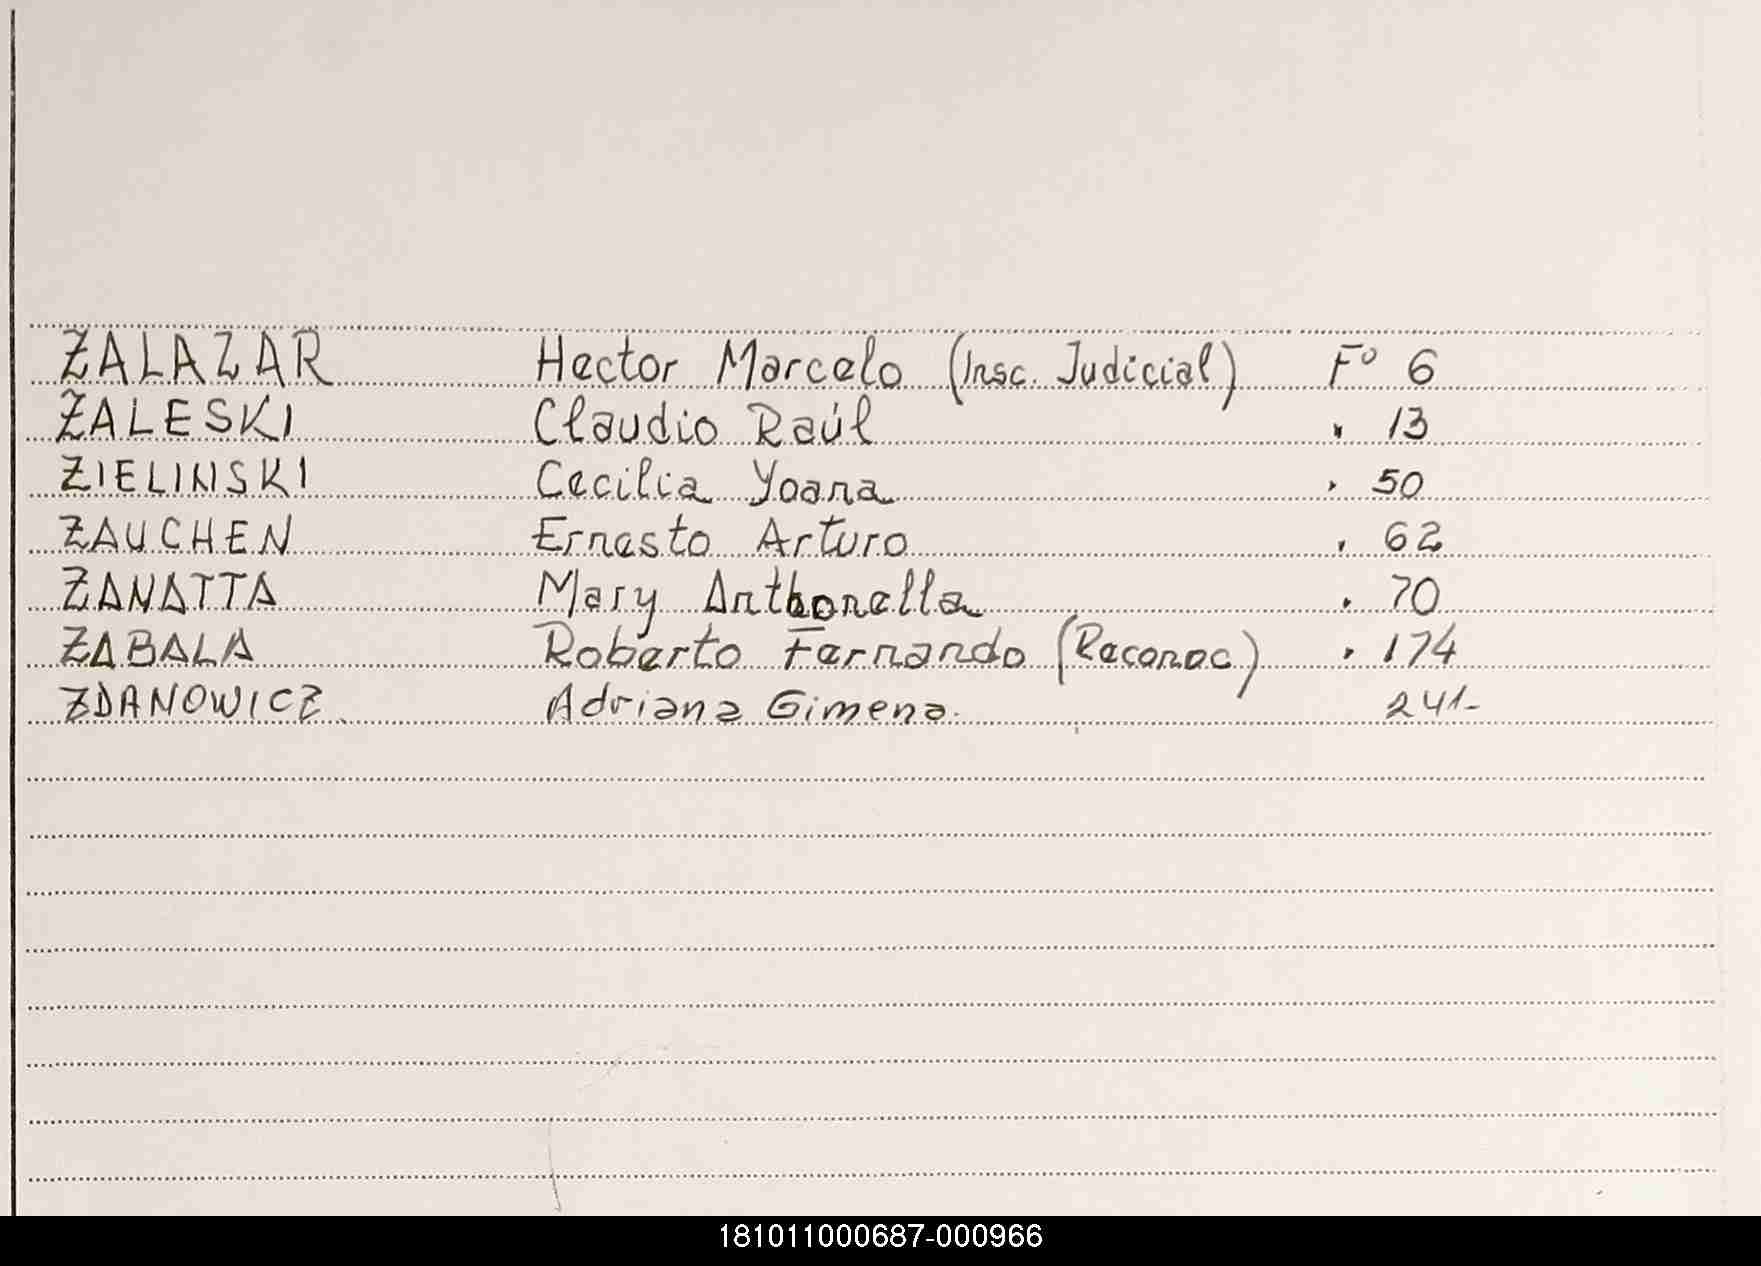 ZALAZAR Hector Marcelo (Insc. Judicial) Fº 6
ZALESKI Claudio Raúl " 13
ZIELINSKI Cecilia Yoana " 50
ZAUCHEN Ernesto Arturo " 62
ZANATTA Mary Anthonella " 70
ZABALA Roberto Fernando (Reconoc) " 174
ZDANOWICZ Adriana Gimena. 241-
181011000687-000966